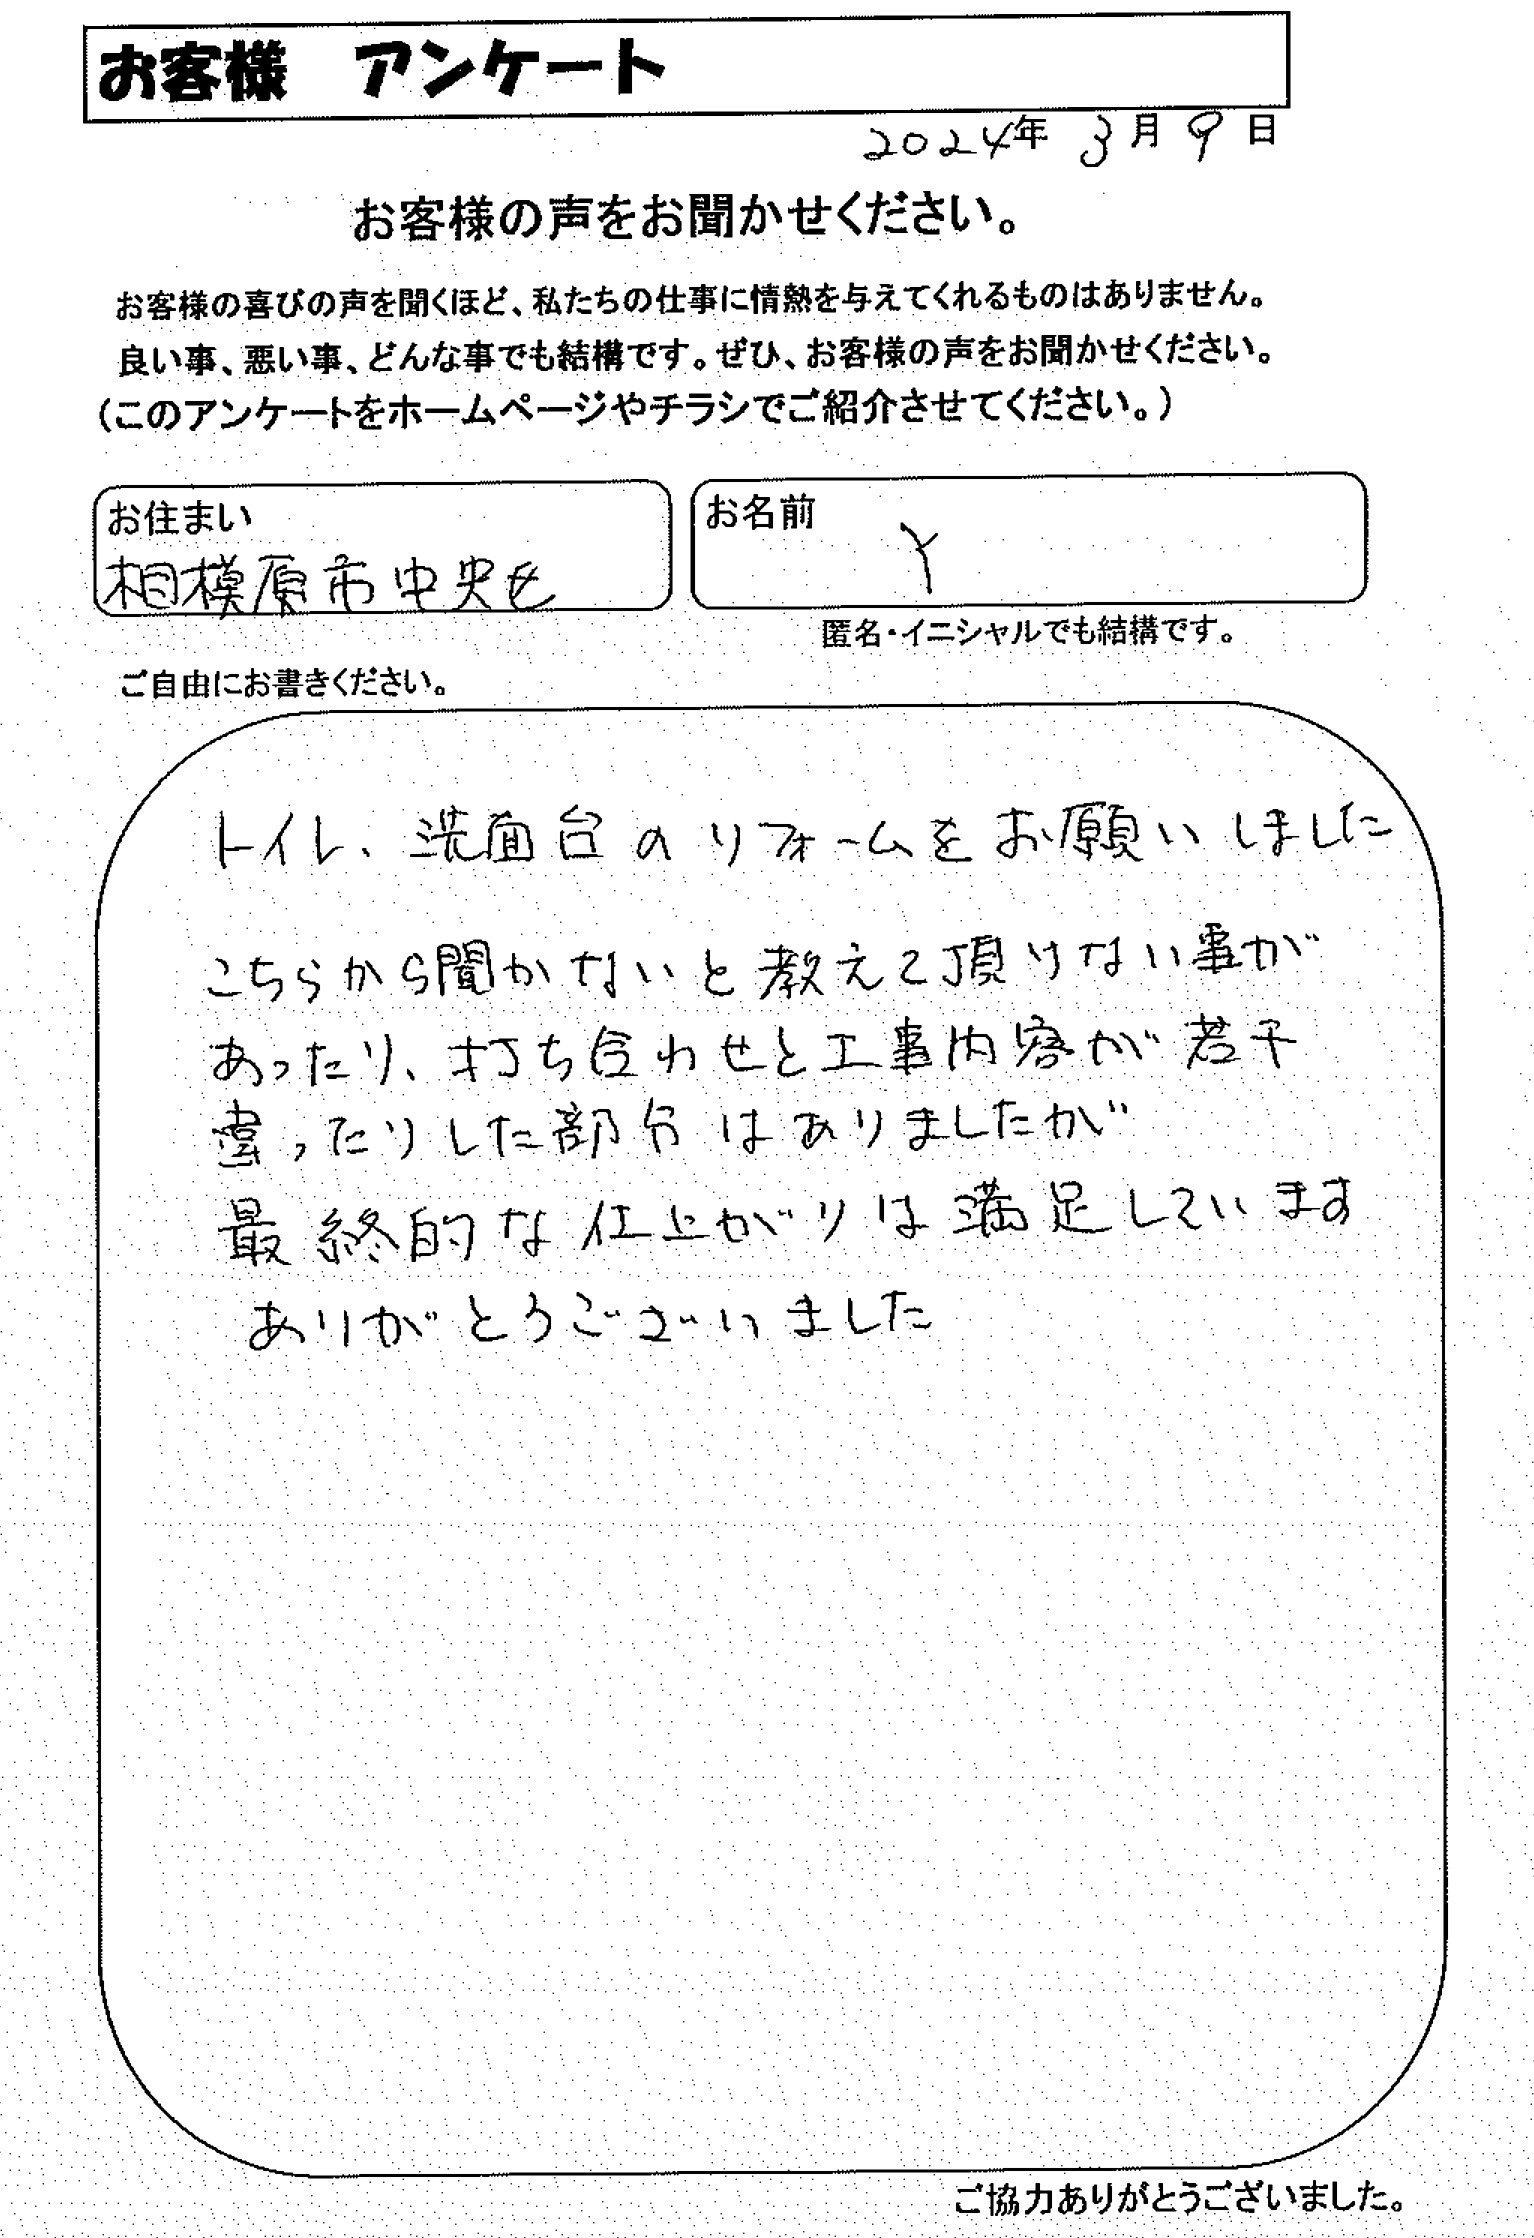 お客様　アンケート
2024年 3月 9日
お客様の声をお聞かせください。
お客様の喜びの声を聞くほど、私たちの仕事に情熱を与えてくれるものはありません。
良い事、悪い事、どんな事でも結構です。ぜひ、お客様の声をお聞かせください。
（このアンケートをホームページやチラシでご紹介させてください。）
お住まい
相模原市中央区
お名前
Y
匿名・イニシャルでも結構です。
ご自由にお書きください。
トイレ、洗面台のリフォームをお願いしました
こちらから聞かないと教えて頂けない事が
あったり、打ち合わせと工事内容が若干
違ったりした部分はありましたが
最終的な仕上がりは満足しています
ありがとうございました
ご協力ありがとうございました。